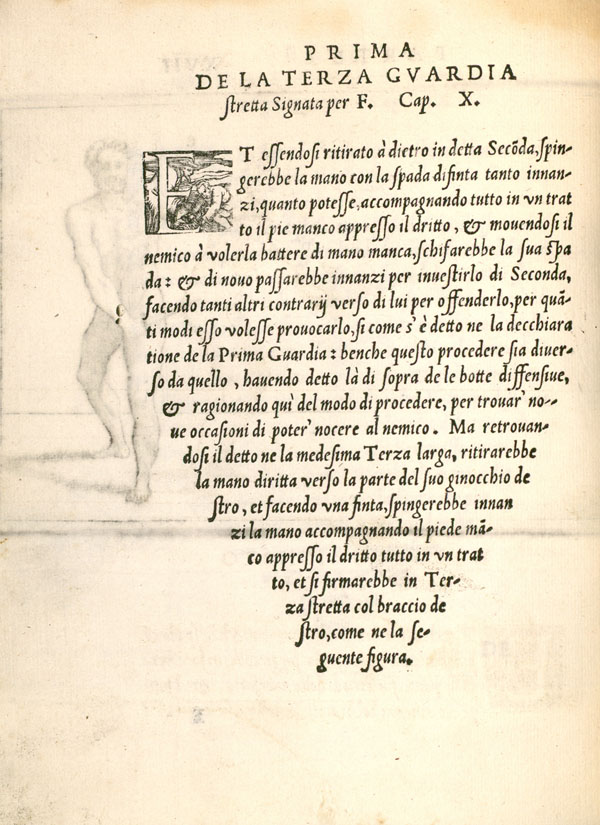 PRIMA
DE LA TERZA GVARDIA
stretta Signata per F. Cap. X.
ET essendosi ritirato à dietro in detta Secõda, spin-
gerebbe la mano con la spada di finta tanto innan-
zi, quanto potesse, accompagnando tutto in vn trat
to il pie manco appresso il dritto, & mouendosi il
nemico à volerla battere di mano manca, schifarebbe la sua spa
da: & di nouo passarebbe innanzi per inuestirlo di Seconda,
facendo tanti altri contrarij verso di lui per offenderlo, per quã-
ti modi esso volesse prouocarlo, si come s'è detto ne la decchiara
tione de la Prima Guardia: benche questo procedere sia diuer-
so da quello, hauendo detto là di sopra de le botte diffensiue,
& ragionando quì del modo di procedere, per trouar' no-
ue occasioni di poter' nocere al nemico. Ma retrouan-
dosi il detto ne la medesima Terza larga, ritirarebbe
la mano diritta verso la parte del suo ginocchio de
stro, et facendo vna finta, spingerebbe innan
zi la mano accompagnando il piede mã-
co appresso il dritto tutto in vn trat
to, et si firmarebbe in Ter-
za stretta col braccio de
stro, come ne la se-
guente figura.